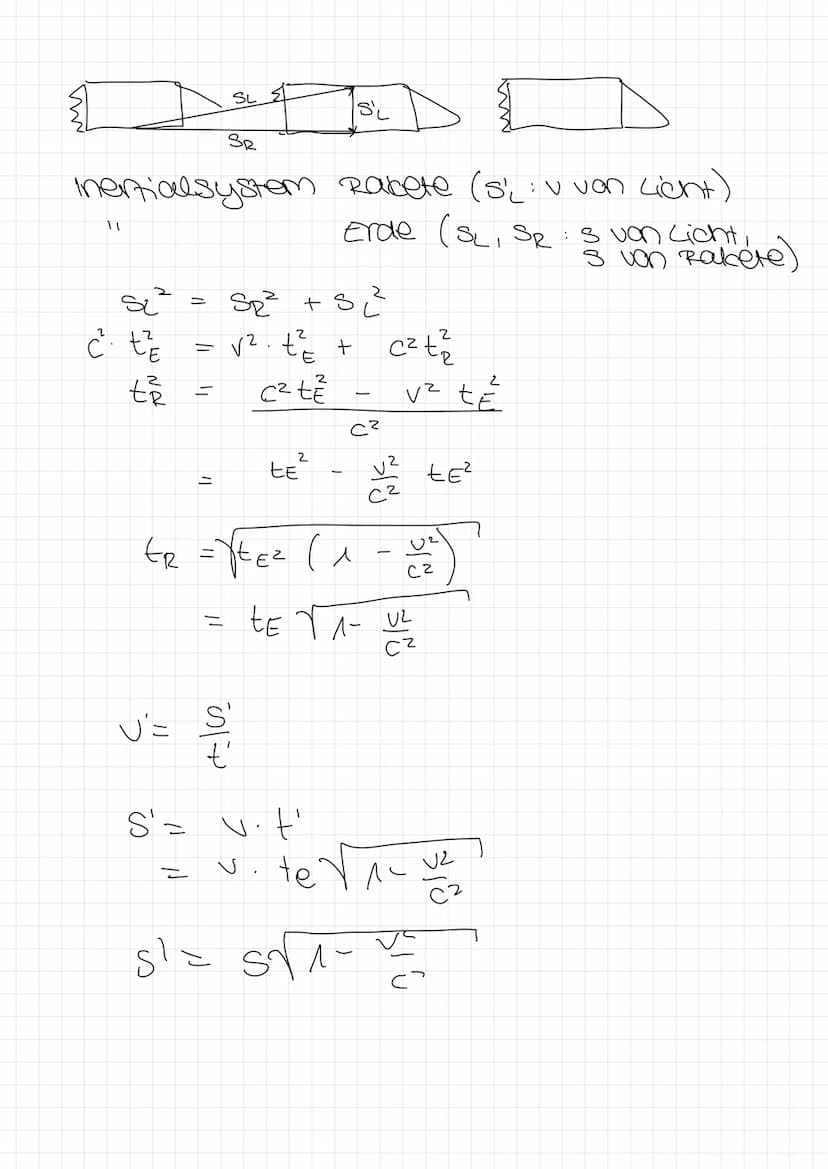 SL S'L
SR
Inertialsystem Rakete (S'L : v von Licht)
" Erde (SL, SR : s von Licht,
s von Rakete)
SL² = SR² + SL²
c² · tE² = v² · tE² + c² tR²
tR² = (c² tE² - v² tE²) / c²
= tE² - v²/c² tE²
tR = √(tE² (1 - v²/c²))
= tE √(1 - v²/c²)
v' = s'/t'
s' = v · t'
= v · te √(1 - v²/c²)
s' = s √(1 - v²/c²)